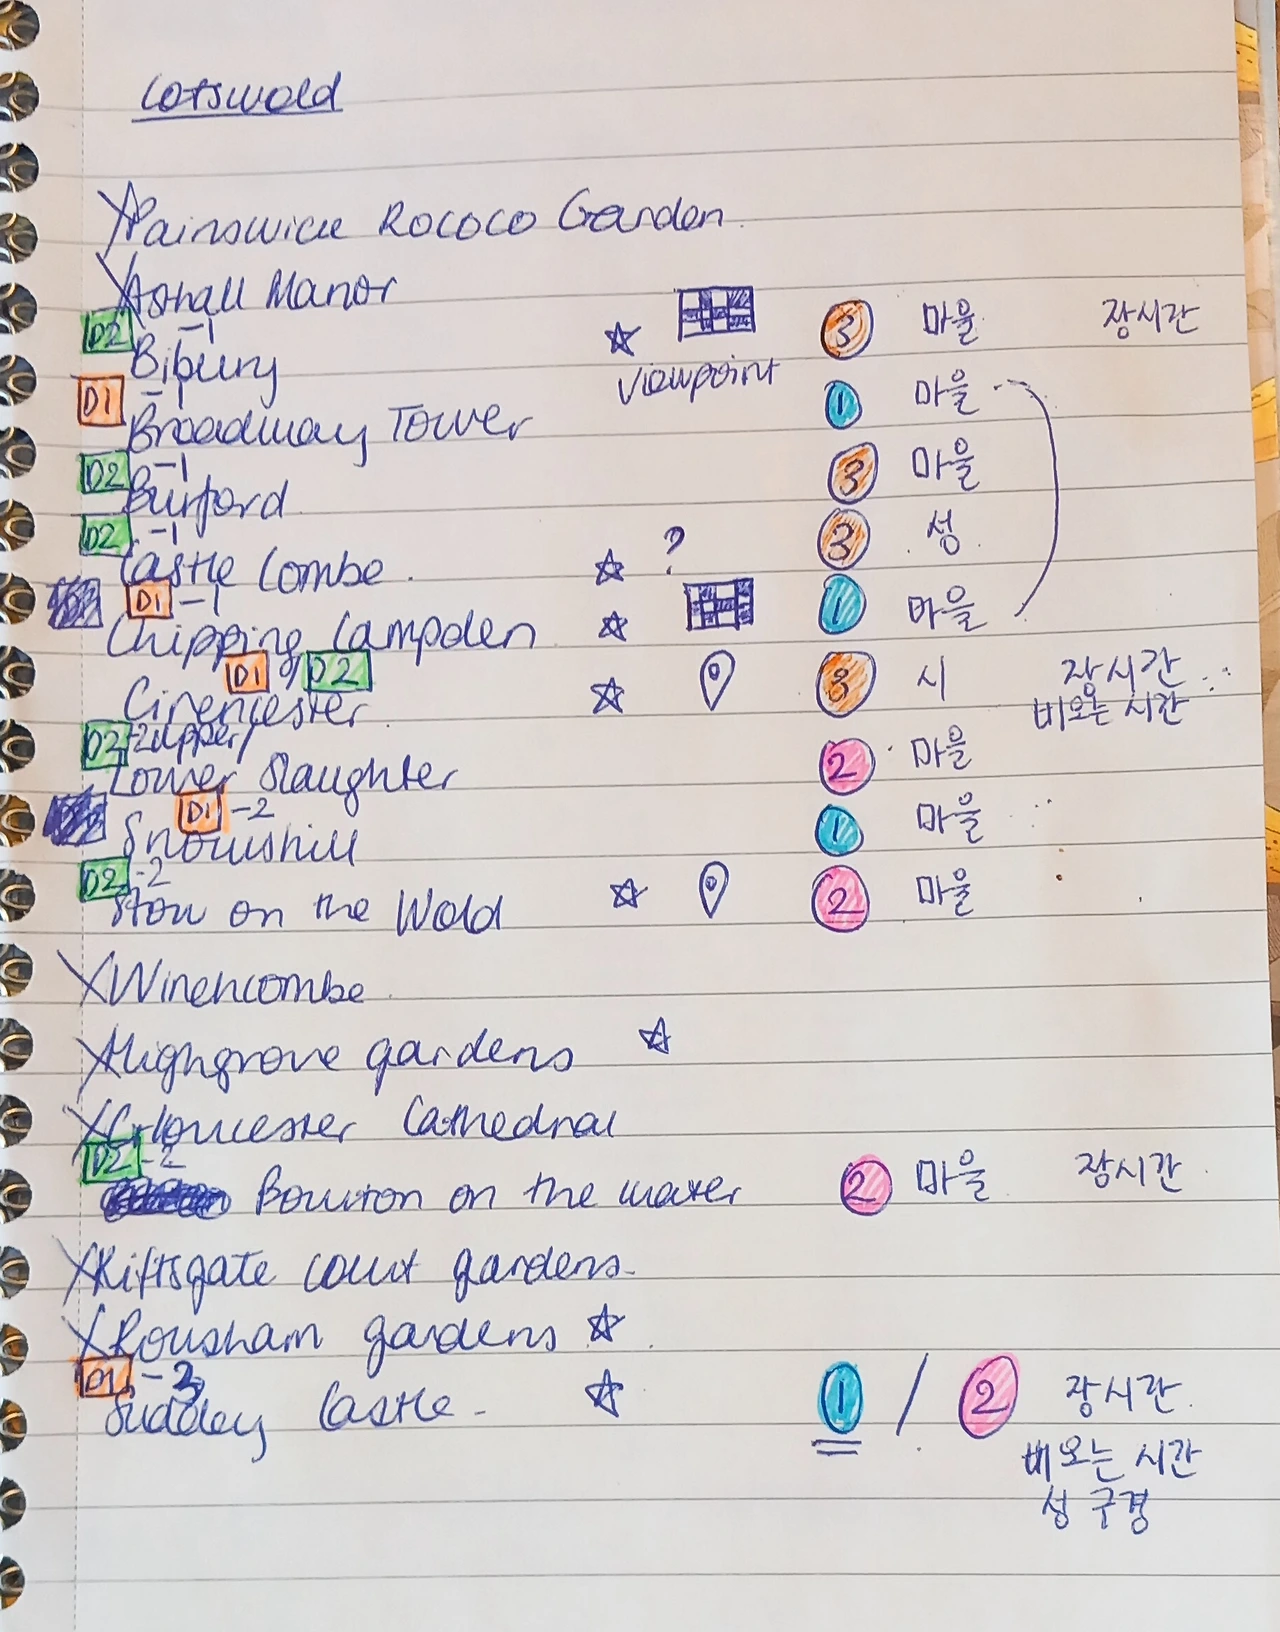 Cotswold
Painswick Rococo Garden.
Asthall Manor
D2 -1
Bibury 3 마을 장시간
viewpoint
D1 -1
Broadway Tower 1 마을
D2 -1
Burford 3 마을
D2 -1
Castle Combe. ? 3 성
D1 -1
Chipping Campden 1 마을
D1 / D2
Cirencester 3 시 장시간
비오는 시간
D2 -2 upper/
Lower Slaughter 2 마을
D1 -2
Snowshill 1 마을
D2 -2
Stow on the Wold 2 마을
Winchcombe
Highgrove gardens
Gloucester Cathedral
D2 -2
Bourton on the water 2 마을 장시간
Kiftsgate court gardens
Rousham gardens
D1 -3
Sudeley Castle 1 / 2 장시간
비오는 시간
성 구경